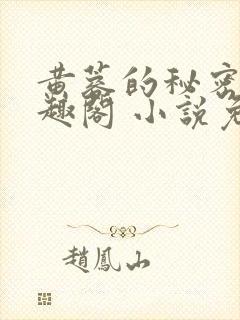 黄蓉的秘密
趣閣 小說免
趙鳳山